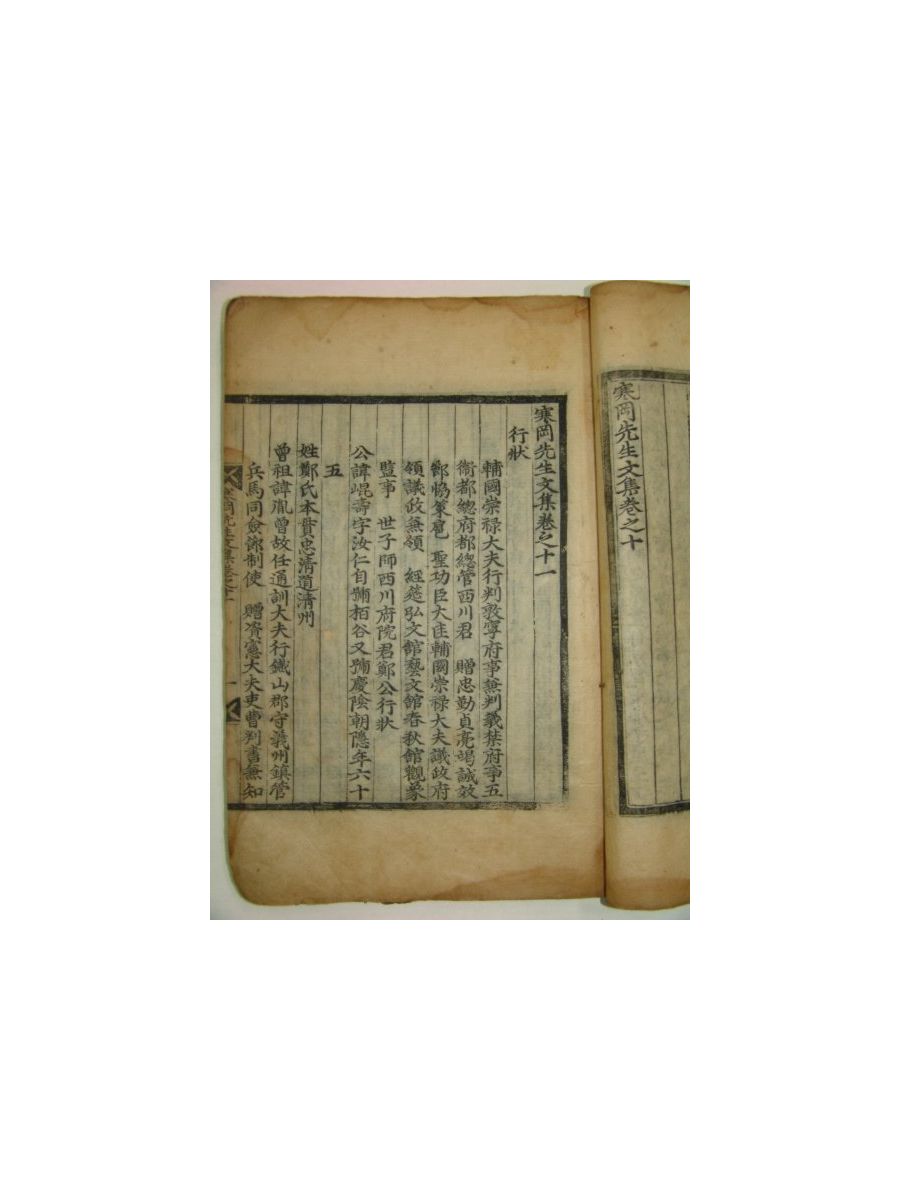 寒岡先生文集卷之十
寒岡先生文集卷之十一
行狀
輔國崇祿大夫行判敦寧府事無判義禁府事五
衛都總府都總管西川君 贈忠勤貞亮竭誠效
節協策扈 聖功臣大匡輔國崇祿大夫議政府
領議政無領 經筵弘文館藝文館春秋館觀象
監事 世子師西川府院君鄭公行狀
公諱崐壽字汝仁自號栢谷又號慶陰朝隱年六十
五
姓鄭氏本貫忠清道清州
曾祖諱胤曾故任通訓大夫行鐵山郡守義州鎮管
兵馬同僉節制使 贈資憲大夫吏曹判書無知
寒岡先生文集卷之十一
一